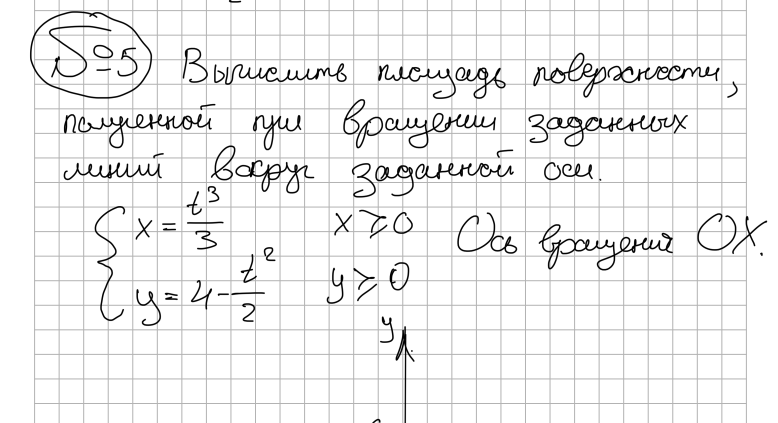 №5 Вычислить площадь поверхности,
полученной при вращении заданных
линий вокруг заданной оси.
{ x = t³/3 x ⩾ 0 Ось вращения OX.
y = 4 - t²/2 y ⩾ 0
y